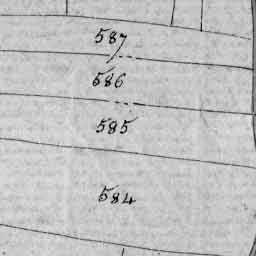 587
586
585
584